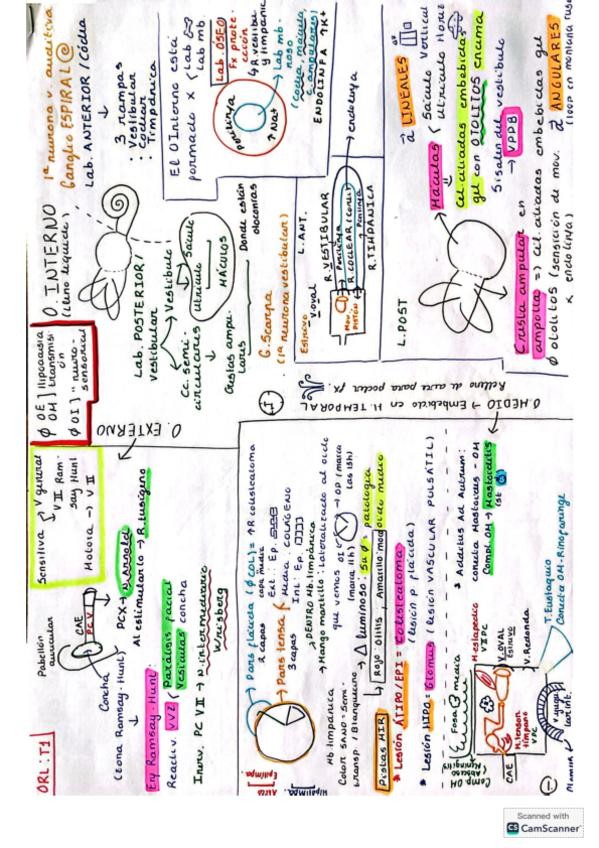 ORL: T1
Pabellón
auricular
CAE
PCV
Concha
(Zona Ramsay-Hunt)
Enf Ramsay-Hunt:
Reactiv. VVZ Parálisis facial
Vesículas concha
Inerv. PC VII → N. intermediario
Wrisberg
PCX →
Al estimularlo → R. tusígeno
Sensitiva
V general
VII Ramsay Hunt
Motora → VII
O. EXTERNO
Ø OE] Hipoacusia
OM] transmisión
Ø OI] "neurosensorial
O. INTERNO
(lleno líquido)
1ª neurona v. auditiva
Ganglio ESPIRAL @
Lab. ANTERIOR / Cóclea
3 rampas
: Vestibular
: Coclear
: Timpánica
Lab. POSTERIOR /
vestibular
Vestíbulo
Sáculo
Utrículo
MÁCULAS
Cc. semicirculares
Crestas ampulares
Donde están
otoconias
G. Scarpa
(1ª neurona vestibular)
El O Interno está
formado x
Lab
Lab mb.
Lab. ÓSEO
Fx protección
R. vestibul
y timpánica
Lab mb
noso
(cóclea, mácula,
C. ampulares)
ENDOLINFA ↑K+
Perilinfa
↑Na+
L. ANT.
Estribo
V. oval
R. VESTIBULAR
Perilinfa
R. COCLEAR (Corti)
Perilinfa
R. TIMPÁNICA
→ endolinfa
Mov.
PISTÓN
L. POST
LINEALES
Máculas
Sáculo Vertical
Utrículo Horiz
Cel. ciliadas embebidas
gel con OTOLITOS encima
Si salen del vestíbulo
→ VPPB
Cresta ampular en
ampolla → Cel. ciliadas embebidas gel
Ø otolitos (sensación de mov.
x endolinfa)
ANGULARES
(loop en montaña rusa)
O. MEDIO → Embebido en H. TEMPORAL
Relleno de aire para poder fx.
Pars flácida (Ø COL) = ↑R colesteatoma
2 capas
capa media
Pars tensa
3 capas
Ext.: Ep.
Media: COLÁGENO
Int.: Ep.
Epitímpa.
Ático
Hipotímpa.
→ DENTRO Mb. timpánica
→ Mango martillo: Lateralizado al oído
que vemos OI
OD (marca
(marca 11h)
(las 1h)
Mb. timpánica
Color SANO = Semi-
transp / Blanquecino
→ Δ luminoso: Si Ø → patología
Rojo: Otitis, Amarillo moco oído medio
Pistas MIR
* Lesión ÁTIPO/EPI = Colesteatoma
(lesión p flácida)
* Lesión HIPO: Glomus (lesión VASCULAR PULSÁTIL)
Comp. OM
Absceso
Meningitis
Fosa media
CAE
M. tensor
tímpano
VPC
M. estapedio
VII PC
V. OVAL
Estribo
V. Redonda
V. yugular int.
T. Eustaquio
Conecta OM-Rinofaringe
* Additus Ad Antrum:
conecta Mastoides - OM
Compl OM → Mastoiditis
Scanned with
CS CamScanner